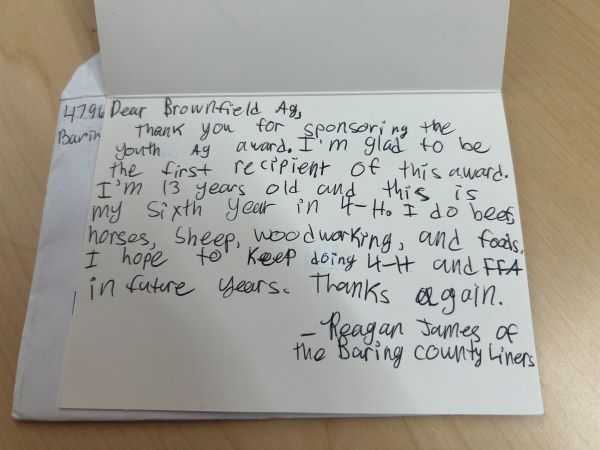 4796
Barin
Dear Brownfield Ag,
Thank you for sponsoring the
Youth Ag award. I'm glad to be
the first recipient of this award.
I'm 13 years old and this is
my sixth year in 4-H. I do beef,
horses, sheep, woodworking, and foods.
I hope to keep doing 4-H and FFA
in future years. Thanks again.
- Reagan James of
the Baring county Liners